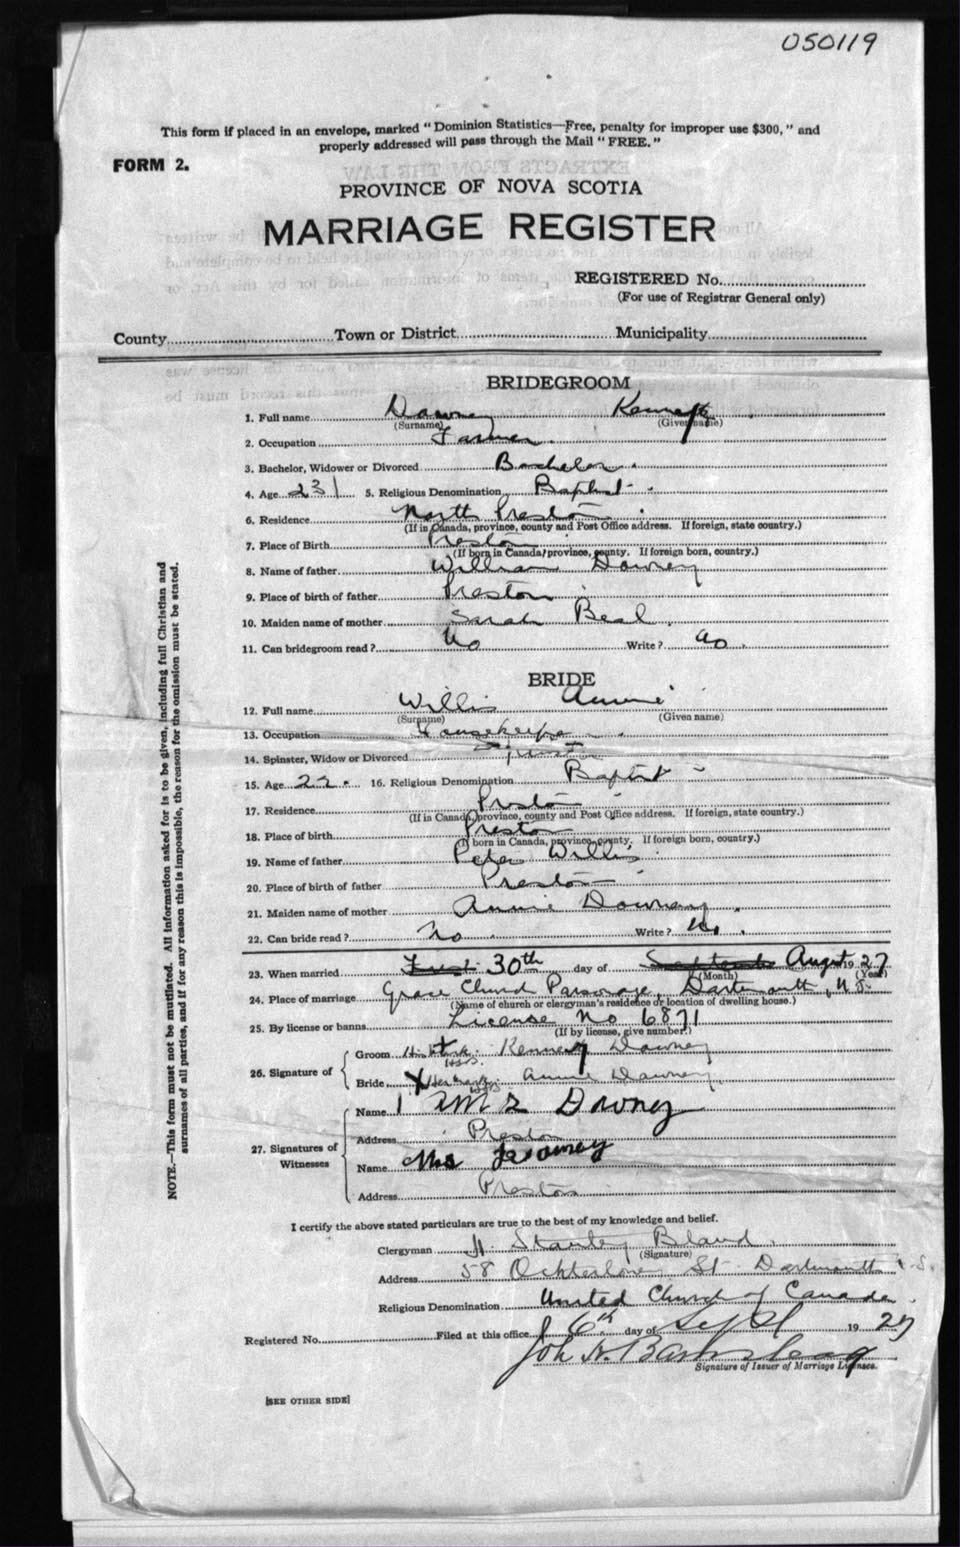 050119
This form if placed in an envelope, marked "Dominion Statistics—Free, penalty for improper use $300," and
properly addressed will pass through the Mail "FREE."
FORM 2.
PROVINCE OF NOVA SCOTIA
MARRIAGE REGISTER
REGISTERED No.
(For use of Registrar General only)
County Town or District Municipality
BRIDEGROOM
1. Full name Downey Kenneth
(Surname) (Given name)
2. Occupation Farmer
3. Bachelor, Widower or Divorced Bachelor
4. Age 23 5. Religious Denomination Baptist
6. Residence North Preston
(If in Canada, province, county and Post Office address. If foreign, state country.)
7. Place of Birth Preston
(If born in Canada, province, county. If foreign born, country.)
8. Name of father William Downey
9. Place of birth of father Preston
10. Maiden name of mother Sarah Beal
11. Can bridegroom read? No Write? No
BRIDE
12. Full name Willis Annie
(Surname) (Given name)
13. Occupation Housekeeper
14. Spinster, Widow or Divorced
15. Age 22 16. Religious Denomination Baptist
17. Residence Preston
(If in Canada, province, county and Post Office address. If foreign, state country.)
18. Place of birth Preston
(If born in Canada, province, county. If foreign born, country.)
19. Name of father Peter Willis
20. Place of birth of father Preston
21. Maiden name of mother Annie Downey
22. Can bride read? No Write? No
23. When married 30th day of August 1927
(Month) (Year)
24. Place of marriage Grace Church Parsonage, Dartmouth, N.S.
(Name of church or clergyman's residence or location of dwelling house.)
25. By license or banns License No 6871
(If by license, give number.)
26. Signature of
Groom His X Mark Kenneth Downey
Bride X Her mark Annie Downey
27. Signatures of
Witnesses
Name Downey
Address Preston
Name Mrs Downey
Address Preston
I certify the above stated particulars are true to the best of my knowledge and belief.
Clergyman H. Stanley Bland
(Signature)
Address 58 Ochterloney St. Dartmouth N.S.
Religious Denomination United Church of Canada
Registered No. Filed at this office 6th day of Sept 1927
Signature of Issuer of Marriage Licenses.
[SEE OTHER SIDE]
NOTE.—This form must not be mutilated. All information asked for is to be given, including full Christian and
surnames of all parties, and if for any reason this is impossible, the reason for the omission must be stated.